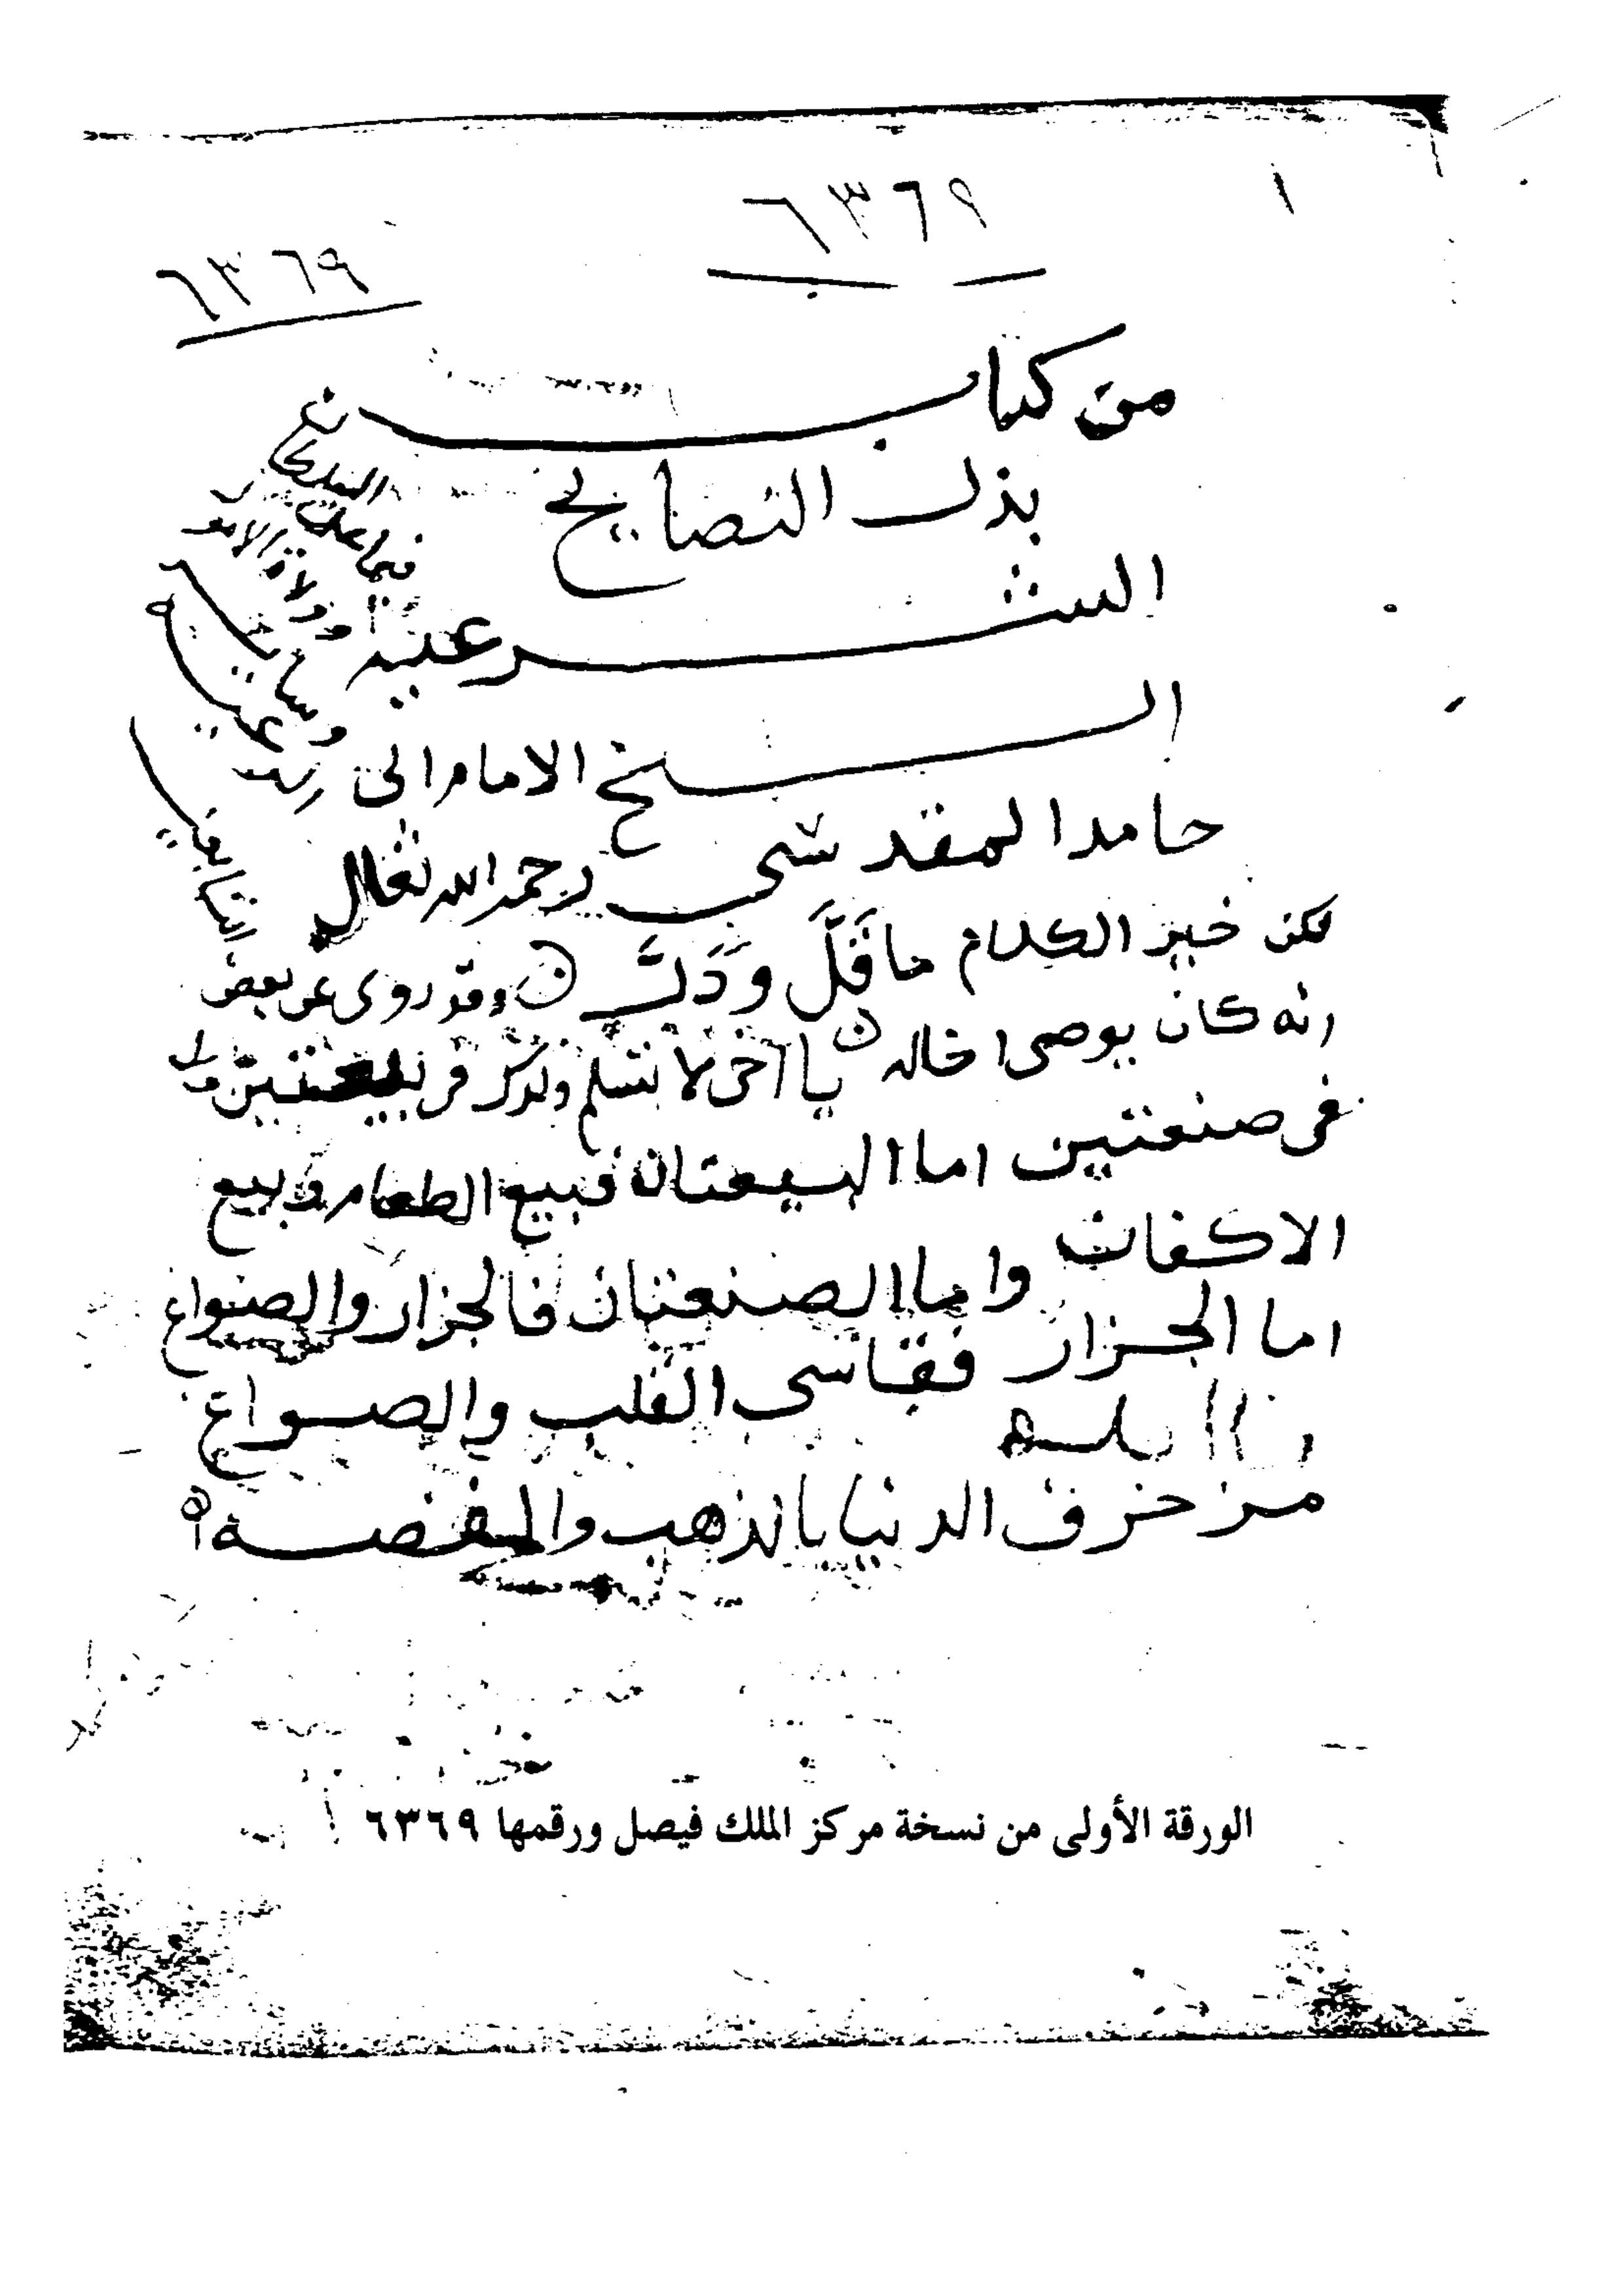 ١
٦٣٦٩
٦٣٦٩
من كتاب
بذل النصايح
الشرعية
فيما على
ولاة الامور
وساير
الشيخ الامام ابى
حامد المقدسى رحمه الله تعالى
لكن خير الكلام ما قَلَّ وَدَلَّ وقد روى عن بعض
انه كان يوصى اخا له يا اخى لا تسلم ولدك فى بيعتين ولا
فى صنعتين اما البيعتان فبيع الطعام وبيع
الاكفان واما الصنعتان فالجزار والصواغ
اما الجزار فقاسى القلب والصواغ
مزخرف الدنيا بالذهب والفضة
الورقة الأولى من نسخة مركز الملك فيصل ورقمها ٦٣٦٩